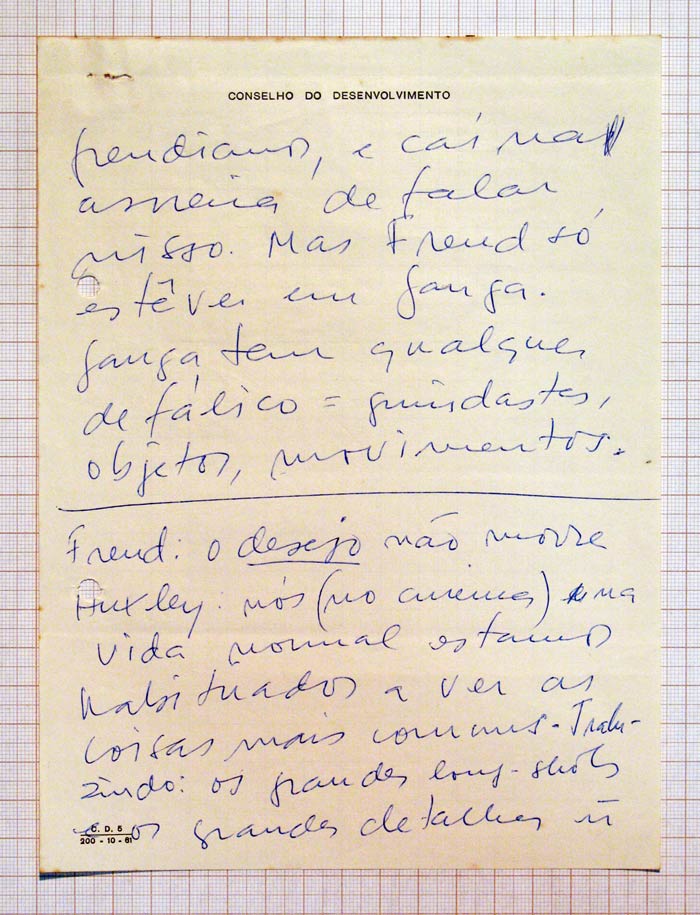 CONSELHO DO DESENVOLVIMENTO
freudianos, e caí na
asneira de falar
nisso. Mas Freud só
estêve em ganga.
ganga tem qualquer
de fálico = guindastes,
objetos, movimentos.
Freud: o desejo não morre
Huxley: nós (no cinema) e na
vida normal estamos
habituados a ver as
coisas mais comuns - Tradu-
zindo: os grandes long-shots
e os grandes detalhes ñ
C. D. 5
200 - 10 - 61